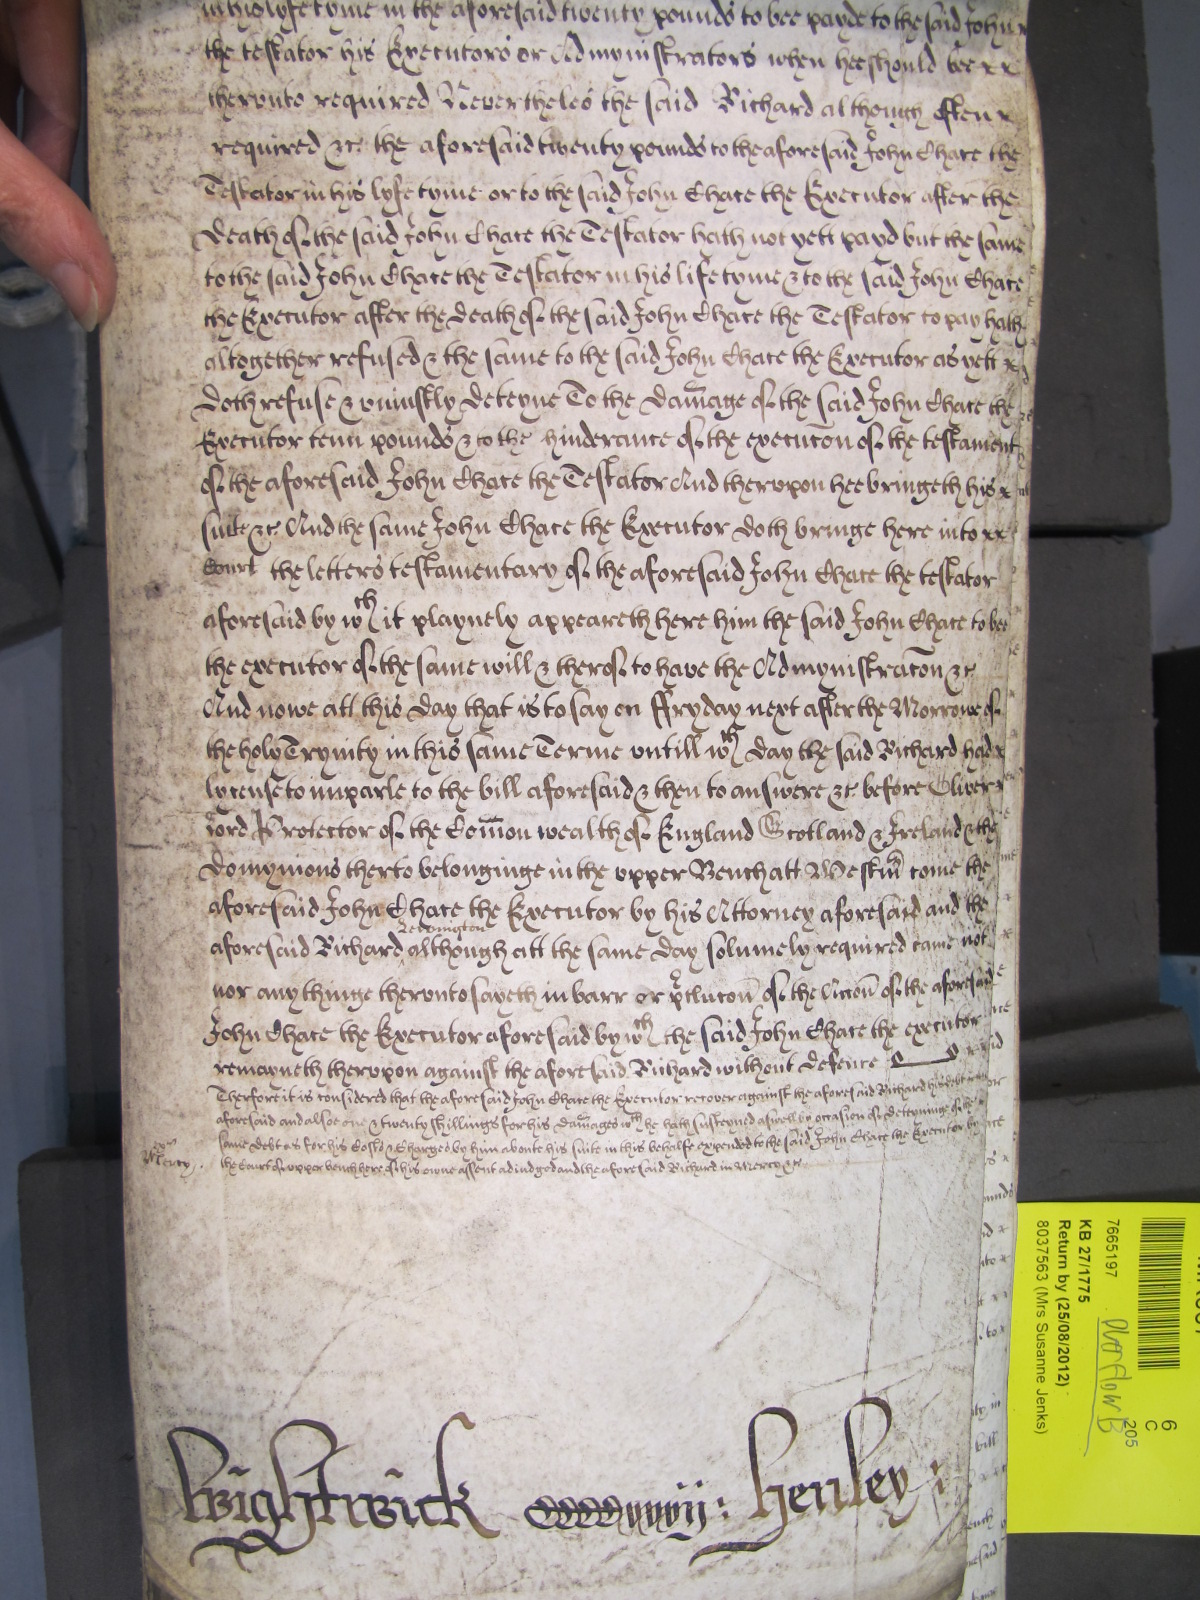 in his lyfe tyme in the aforesaid twenty pounds to bee payde to the said John
the testator his Executors or Admynistrators when hee should bee
therunto required Neverthelės the said Richard although often
required &c the aforesaid twenty pounds to the aforesaid John Chace the
Testator in his lyfe tyme or to the said John Chace the Executor after the
death of the said John Chace the Testator hath not yett payd but the same
to the said John Chace the Testator in his life tyme & to the said John Chace
the Executor after the death of the said John Chace the Testator to pay hath
altogether refused & the same to the said John Chace the Executor as yett
doth refuse & uniustly deteyne To the damage of the said John Chace the
Executor tenn pounds & to the hinderance of the execucon of the testament
of the aforesaid John Chace the Testator And therupon hee bringeth his
suite &c And the same John Chace the Executor doth bringe here into
Court the letters testamentary of the aforesaid John Chace the testator
aforesaid by wch it playnely appeareth here him the said John Chace to bee
the executor of the same will & therof to have the Admynistracon &c
And nowe att this day that is to say on Fryday next after the Morrowe of
the holy Trynity in this same Terme untill wch day the said Richard had
lycense to imparle to the bill aforesaid & then to answere &c before Oliver
lord Protector of the Comon wealth of England Scotland & Ireland & the
domynions therto belonginge in the upper Bench att Westm come the
aforesaid John Chace the Executor by his Attorney aforesaid and the
aforesaid Richard although att the same day solemnely required came not
nor any thinge therunto sayeth in barr or pclucon of the Accon of the aforesaid
John Chace the Executor aforesaid by wch the said John Chace the executor
remayneth therupon against the aforesaid Richard without defence
Therfore it is considered that the aforesaid John Chace the Executor recover against the aforesaid Richard his debt
aforesaid and alsoe one & twenty shillings for his damages wch he hath susteyned aswell by occasion of deteyninge of the
same debt as for his Costs & Charges by him aboute his suite in this behalfe expended to the said John Chace the Executor by
Mercy
the Court of upper bench here of his owne assent adiudged and the aforesaid Richard in Mercy &c
Wightwick ccccxxxiij : Henley
7665197
KB 27/1775
Return by (25/08/2012)
8037563 (Mrs Susanne Jenks)
Overflow B
6
C
205